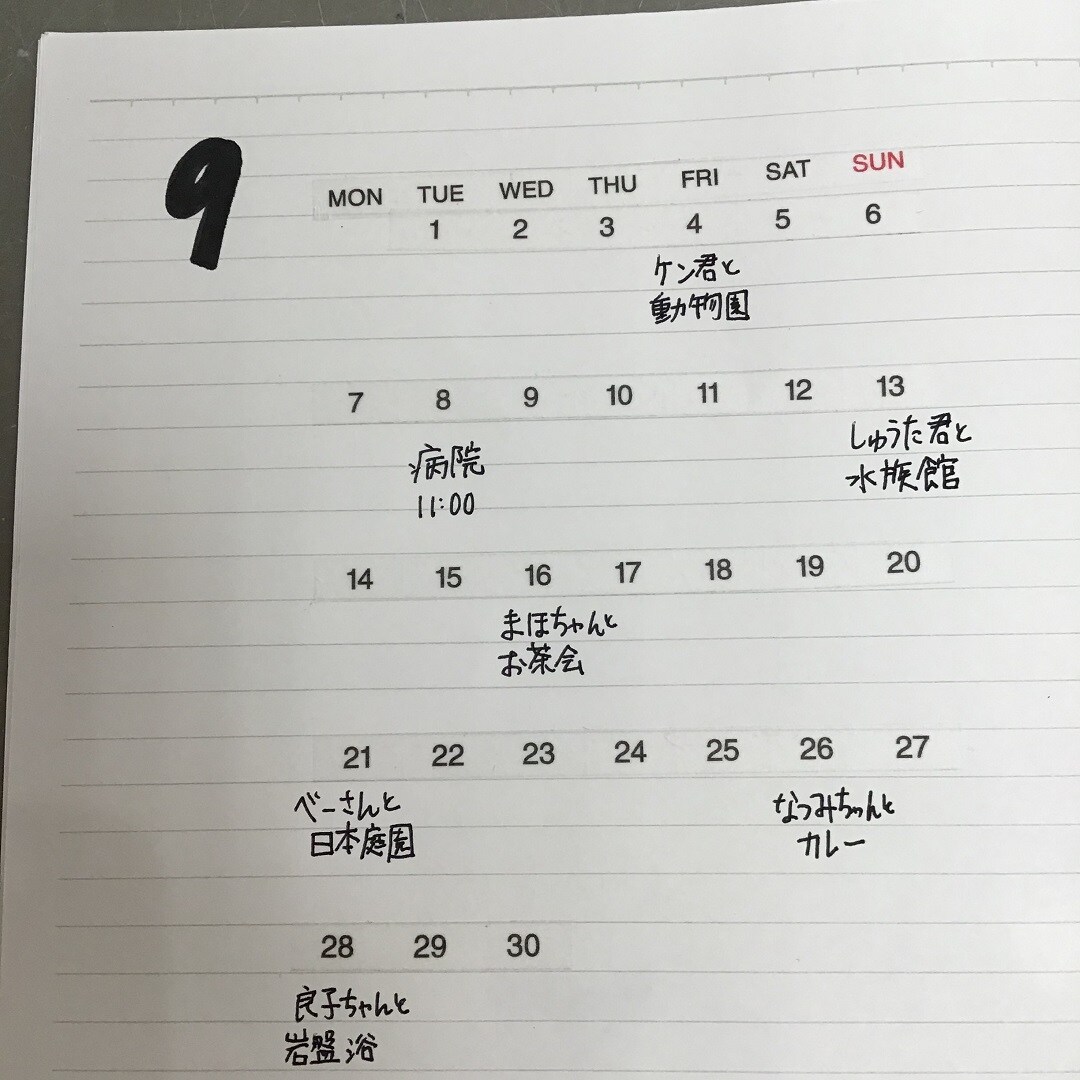 9
MON TUE WED THU FRI SAT SUN
1 2 3 4 5 6
ケン君と
動物園
7 8 9 10 11 12 13
しゅうた君と
水族館
病院
11:00
14 15 16 17 18 19 20
まほちゃんと
お茶会
21 22 23 24 25 26 27
べーさんと
日本庭園
なつみちゃんと
カレー
28 29 30
良子ちゃんと
岩盤浴